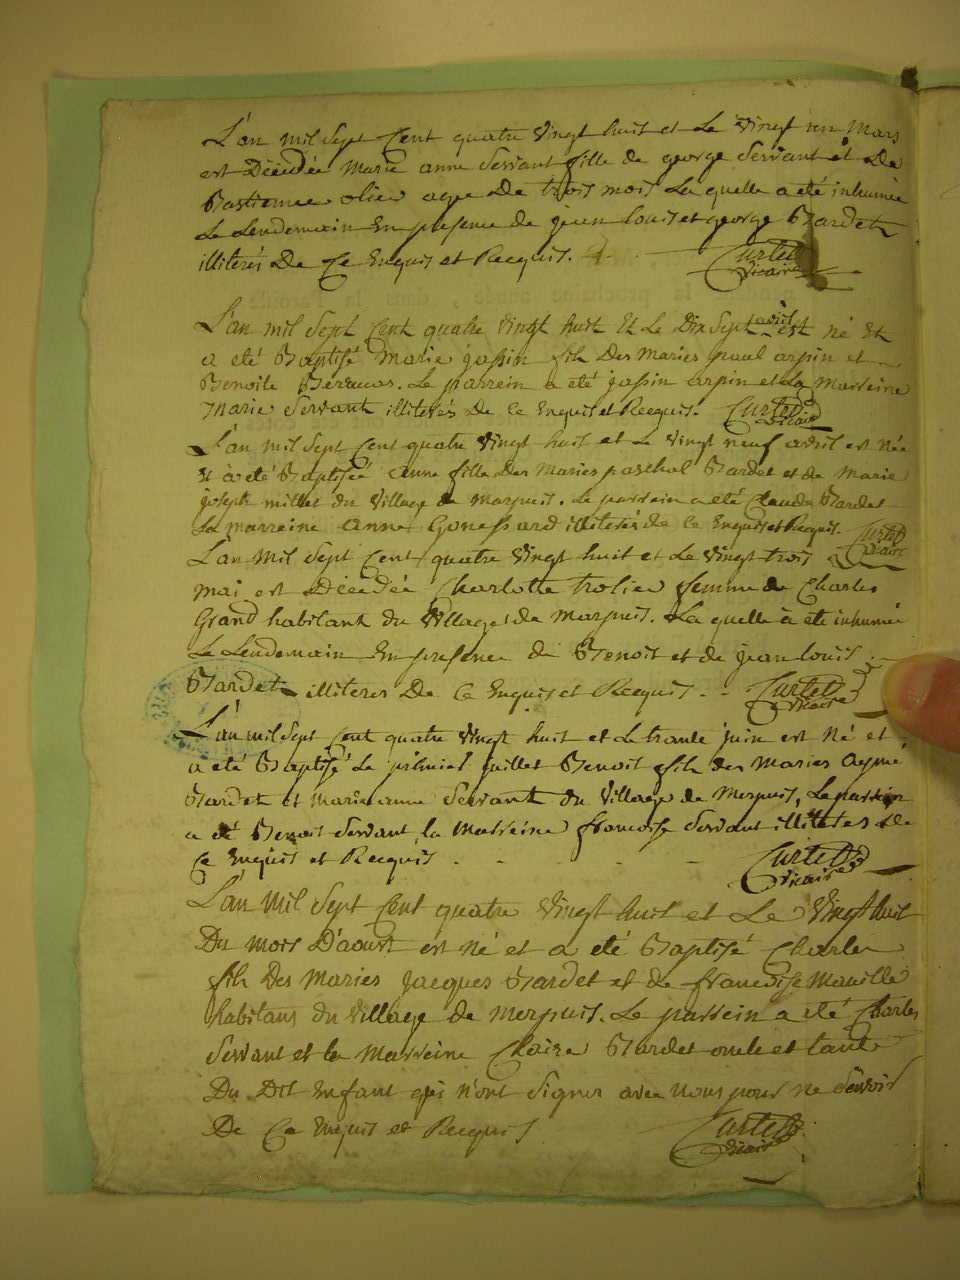 L'an mil Sept Cent quatre Vingt huit et Le Vingt un Mars
est Décédée Marie anne Servant fille de george Servant et De
agée De trois mois La quelle a eté inhumée
Le Lendemain En presence de jean louis et george Bardet
illiterés De Ce Enquis et Requis. Curtet
Vicaire
L'an mil Sept Cent quatre Vingt huit Et Le Dix Sept avril est né Et
a eté Baptisé Marie jossin fils Des Maries paul arpin et
Benoite Le parrein a été jossin arpin et La Marreine
Marie Servant illiterés De Ce Enquis et Requis. Curtet
Vicaire
L'an mil Sept Cent quatre Vingt huit et Le Vingt neuf avril est Née
Et à eté Baptisée anne fille Des Maries paschal Bardet et de Marie
joseph millet du Village de Merpuis. Le parrein a eté Claude Bardet
La marreine anne illiterés de Ce Enquis et Requis. Curtet
Vicaire
L'an Mil Sept Cent quatre Vingt huit et Le Vingt trois
mai est Décédée Charlotte femme de Charles
Grand habitant du Village de Merpuis. La quelle à eté inhumée
Le Lendemain En presence de Benoit et de jean louis
Bardet illiteres De Ce Enquis et Requis. Curtet
Vicaire
L'an mil Sept Cent quatre Vingt huit et Le trante juin est Né et
a eté Baptisé Le premier juillet Benoit fils des Maries Aymé
Bardet et Marie anne Servant du Village de Merpuis, Le parrein
a eté Benoit Servant la Marreine francoise Servant illiteres De
Ce Enquis et Requis Curtet
Vicaire
L'an Mil Sept Cent quatre Vingt huit et Le Vingt huit
Du mois D'aoust est né et a eté Baptisé Charles
fils Des Maries Jacques Bardet et de francoise
habitans du Village de Merpuis. Le parrein a eté Charles
Servant et la Marreine Claire Bardet oncle et tante
Du Dit Enfant qui n'ont Signer avec Nous pour ne Scavoir
De Ce Enquis et Requis Curtet
Vicaire